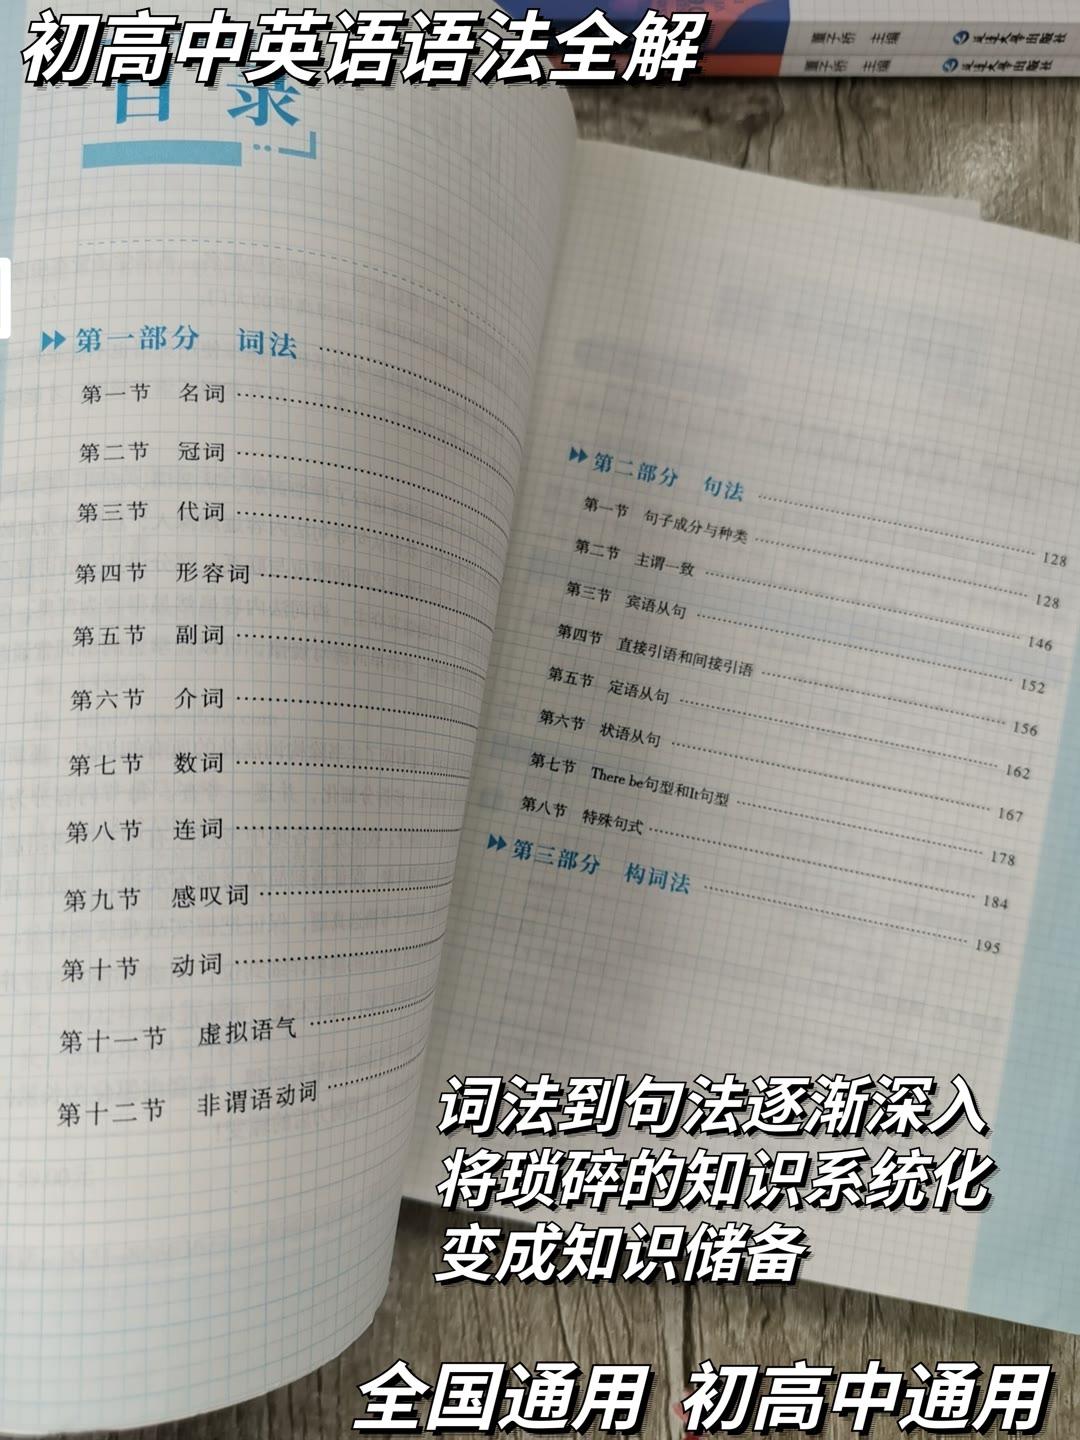 初高中英语语法全解
董子桥 主编 延边大学出版社
董子桥 主编 延边大学出版社
目录
第一部分 词法
第一节 名词
第二节 冠词
第三节 代词
第四节 形容词
第五节 副词
第六节 介词
第七节 数词
第八节 连词
第九节 感叹词
第十节 动词
第十一节 虚拟语气
第十二节 非谓语动词
第二部分 句法 128
第一节 句子成分与种类 128
第二节 主谓一致 146
第三节 宾语从句 152
第四节 直接引语和间接引语 156
第五节 定语从句 162
第六节 状语从句 167
第七节 There be句型和It句型 178
第八节 特殊句式 184
第三部分 构词法 195
词法到句法逐渐深入
将琐碎的知识系统化
变成知识储备
全国通用 初高中通用